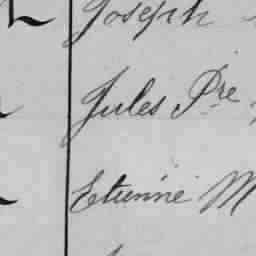 Joseph
Jules Pre
Etienne M